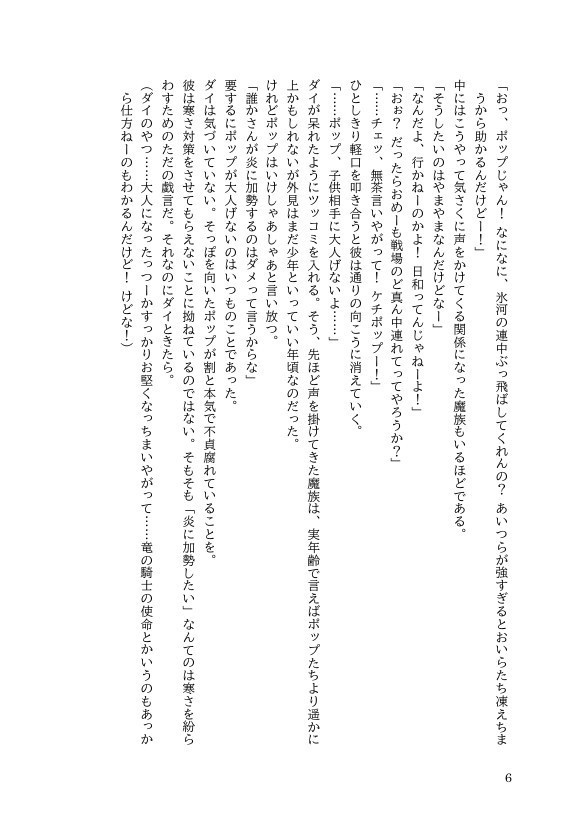 「おっ、ポップじゃん！ なになに、氷河の連中ぶっ飛ばしてくれんの？ あいつらが強すぎるとおいらたち凍えちま
うから助かるんだけどー！」
中にはこうやって気さくに声をかけてくる関係になった魔族もいるほどである。
「そうしたいのはやまやまなんだけどなー」
「なんだよ、行かねーのかよ！ 日和ってんじゃねーよ！」
「おぉ？ だったらおめーも戦場のど真ん中連れてってやろうか？」
「……チェッ、無茶言いやがって！ ケチポップー！」
ひとしきり軽口を叩き合うと彼は通りの向こうに消えていく。
「……ポップ、子供相手に大人げないよ……」
ダイが呆れたようにツッコミを入れる。そう、先ほど声を掛けてきた魔族は、実年齢で言えばポップたちより遥かに
上かもしれないが外見はまだ少年といっていい年頃なのだった。
けれどポップはいけしゃあしゃあと言い放つ。
「誰かさんが炎に加勢するのはダメって言うからな」
要するにポップが大人げないのはいつものことであった。
ダイは気づいていない。そっぽを向いたポップが割と本気で不貞腐れていることを。
彼は寒さ対策をさせてもらえないことに拗ねているのではない。そもそも「炎に加勢したい」なんてのは寒さを紛ら
わすためのただの戯言だ。それなのにダイときたら。
（ダイのやつ……大人になったっつーかすっかりお堅くなっちまいやがって……竜の騎士の使命とかいうのもあっか
ら仕方ねーのもわかるんだけど！ けどな！）
6